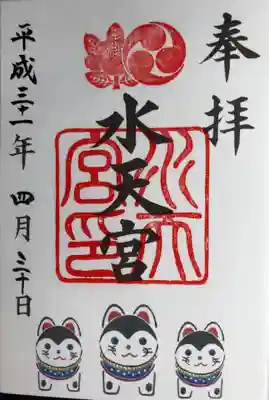 奉拝
水天宮
水天
宮印
平成三十一年 四月三十日